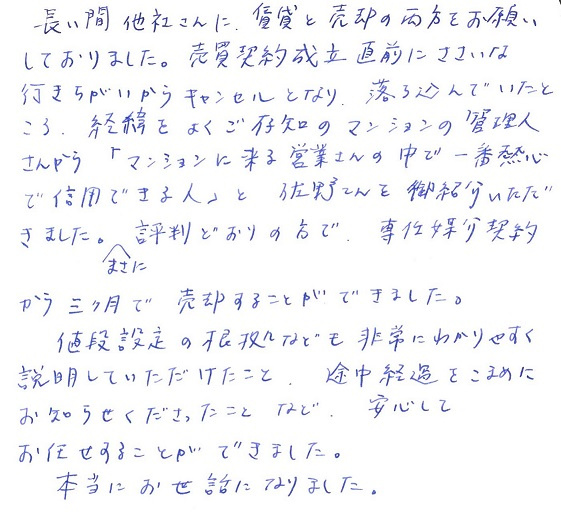 長い間 他社さんに、賃貸と売却の両方をお願い
しておりました。売買契約成立直前にささいな
行きちがいからキャンセルとなり、落ち込んでいたと
ころ、経緯をよくご存知のマンションの管理人
さんから「マンションに来る営業さんの中で一番熱心
で信用できる人」と 佐野さんを御紹介いただ
きました。評判どおりの方で、専任媒介契約
まさに
から三ヶ月で 売却することができました。
値段設定の根拠なども非常にわかりやすく
説明していただけたこと、途中経過をこまめに
お知らせくださったことなど、安心して
お任せすることができました。
本当にお世話になりました。